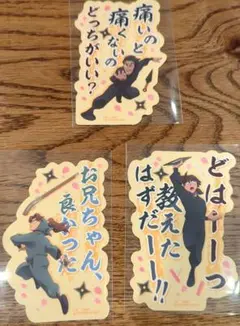 痛いのと
痛くないの
どっちがいい？
お兄ちゃん、
良いった
どはーーっ
教えた
はずだーー!!